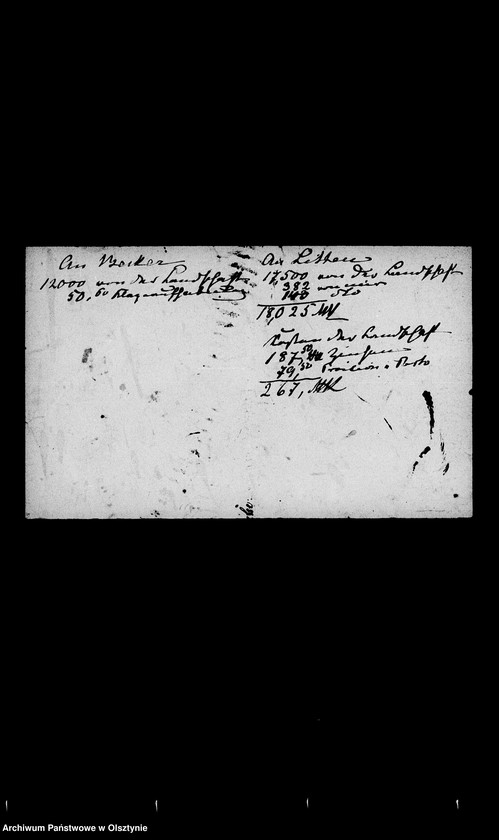 An Becker
12000 von der Landschaft
50,50
An Litten
17,500 von der Landschaft
382 von mir
143 dto
18,025 Mk
Kosten der Landschaft
187,50 Mk Zinsen
79,50 Provision u Porto
267, Mk
Archiwum Państwowe w Olsztynie